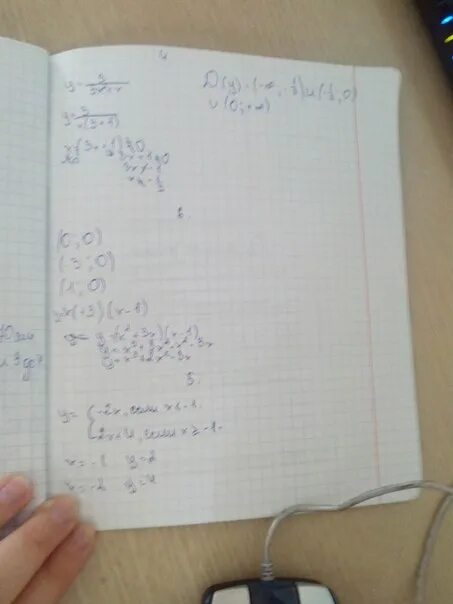 4
y = 3/(3x²+x)
D(y) = (-∞; -1/3) ∪ (-1/3; 0)
∪ (0; +∞)
y = 3/(x(3x+1))
x(3x+1) ≠ 0
x≠0 3x+1≠0
3x ≠ -1
x ≠ -1/3
6.
(0; 0)
(-3; 0)
(1; 0)
y=x(x+3)(x-1)
y=(x²+3x)(x-1)
y=x³+3x²-x²-3x
y=x³+2x²-3x
5.
y= { -2x, если x<-1.
2x+4, если x≥-1.
x=-1 y=2
x=-2 y=4